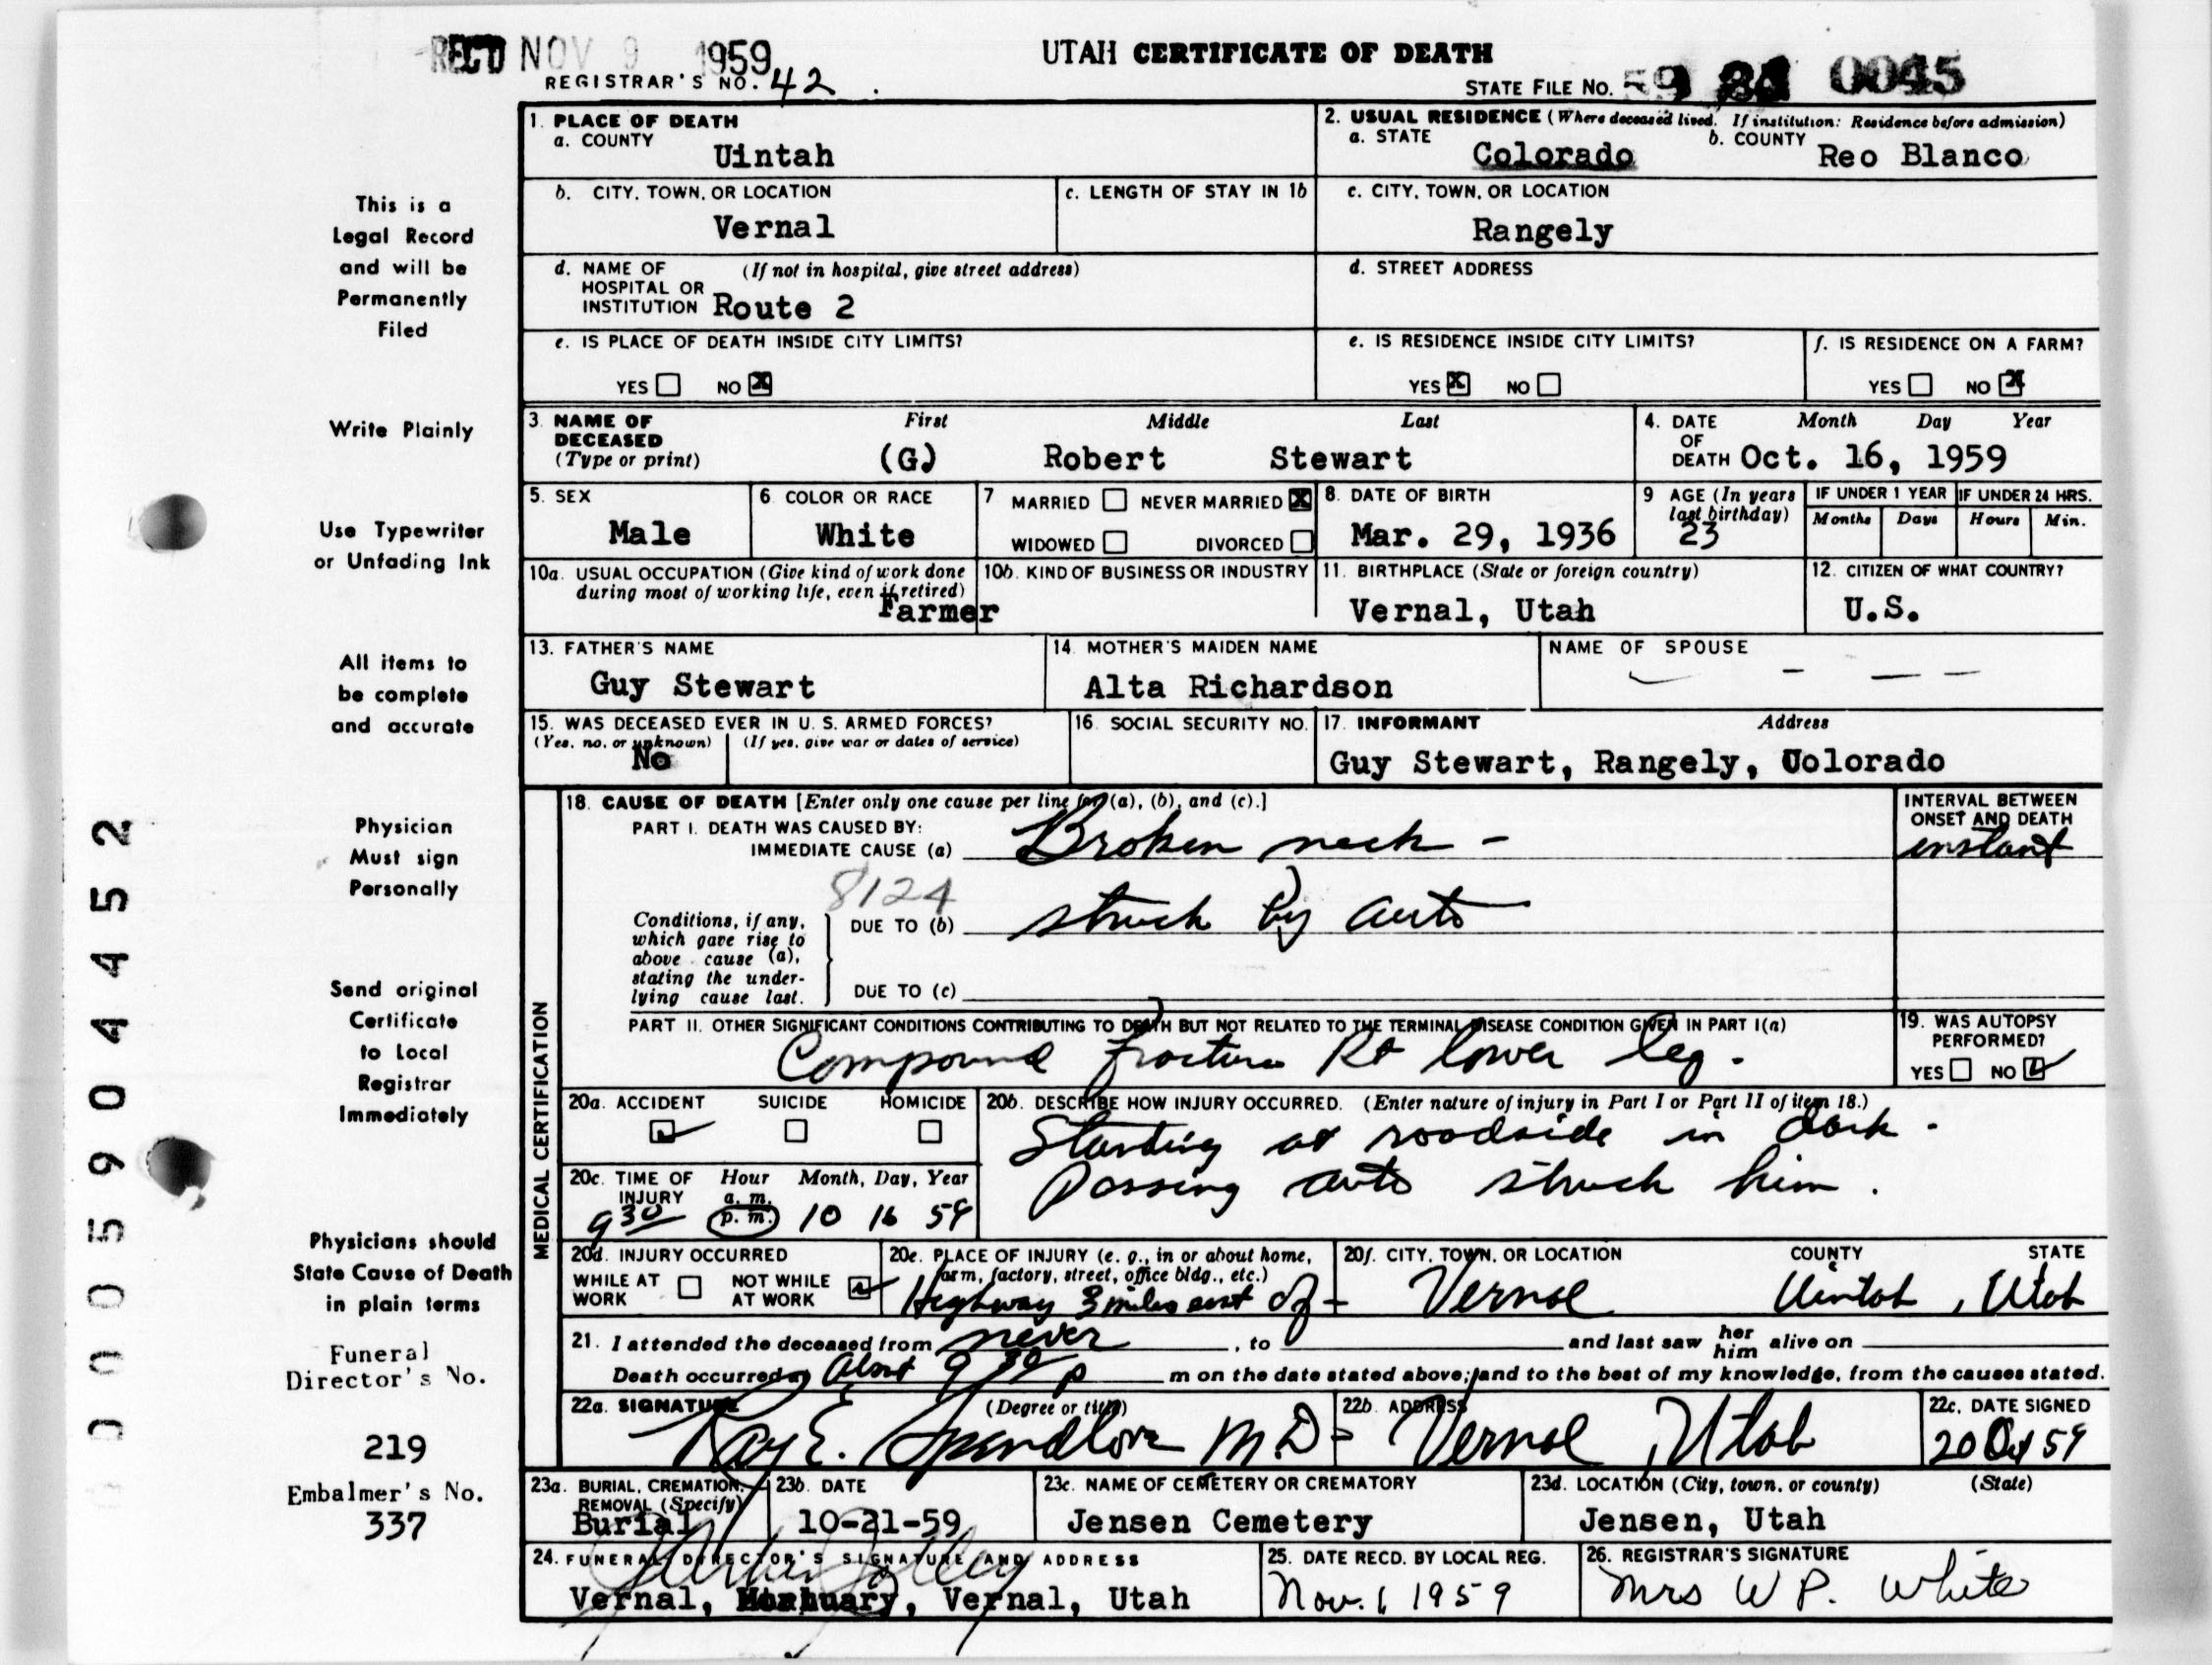 REC'D NOV 9 1959
UTAH CERTIFICATE OF DEATH
REGISTRAR'S NO. 42
STATE FILE NO. 59 0045
1. PLACE OF DEATH
a. COUNTY
Uintah
2. USUAL RESIDENCE (Where deceased lived. If institution: Residence before admission)
a. STATE Colorado b. COUNTY Reo Blanco
b. CITY, TOWN, OR LOCATION
Vernal
c. LENGTH OF STAY IN 1b
c. CITY, TOWN, OR LOCATION
Rangely
d. NAME OF (If not in hospital, give street address)
HOSPITAL OR
INSTITUTION Route 2
d. STREET ADDRESS
e. IS PLACE OF DEATH INSIDE CITY LIMITS?
YES NO X
e. IS RESIDENCE INSIDE CITY LIMITS?
YES X NO
f. IS RESIDENCE ON A FARM?
YES NO X
3. NAME OF DECEASED (Type or print)
First Middle Last
(G.) Robert Stewart
4. DATE OF DEATH Month Day Year
Oct. 16, 1959
5. SEX
Male
6. COLOR OR RACE
White
7 MARRIED NEVER MARRIED X
WIDOWED DIVORCED
8. DATE OF BIRTH
Mar. 29, 1936
9 AGE (In years last birthday)
23
IF UNDER 1 YEAR IF UNDER 24 HRS.
Months Days Hours Min.
10a. USUAL OCCUPATION (Give kind of work done
during most of working life, even if retired)
Farmer
10b. KIND OF BUSINESS OR INDUSTRY
11. BIRTHPLACE (State or foreign country)
Vernal, Utah
12. CITIZEN OF WHAT COUNTRY?
U.S.
13. FATHER'S NAME
Guy Stewart
14. MOTHER'S MAIDEN NAME
Alta Richardson
NAME OF SPOUSE
15. WAS DECEASED EVER IN U. S. ARMED FORCES?
(Yes, no, or unknown) (If yes, give war or dates of service)
No
16. SOCIAL SECURITY NO.
17. INFORMANT Address
Guy Stewart, Rangely, Colorado
MEDICAL CERTIFICATION
18. CAUSE OF DEATH [Enter only one cause per line for (a), (b), and (c).]
PART I. DEATH WAS CAUSED BY:
IMMEDIATE CAUSE (a) Broken neck -
INTERVAL BETWEEN
ONSET AND DEATH
instant
8124
Conditions, if any,
which gave rise to
above cause (a),
stating the under-
lying cause last.
DUE TO (b) struck by auto
DUE TO (c)
PART II. OTHER SIGNIFICANT CONDITIONS CONTRIBUTING TO DEATH BUT NOT RELATED TO THE TERMINAL DISEASE CONDITION GIVEN IN PART I(a)
Compound fracture Rt lower leg.
19. WAS AUTOPSY
PERFORMED?
YES NO
20a. ACCIDENT SUICIDE HOMICIDE
20b. DESCRIBE HOW INJURY OCCURRED. (Enter nature of injury in Part I or Part II of item 18.)
Standing at roadside in dark.
Passing auto struck him.
20c. TIME OF INJURY Hour Month, Day, Year
a. m.
9 30 p. m. 10 16 59
20d. INJURY OCCURRED
WHILE AT WORK NOT WHILE AT WORK
20e. PLACE OF INJURY (e. g., in or about home,
farm, factory, street, office bldg., etc.)
Highway 3 miles east of -
20f. CITY, TOWN, OR LOCATION COUNTY STATE
Vernal Uintah, Utah
21. I attended the deceased from never, to and last saw her him alive on
Death occurred at About 9 30 p m on the date stated above; and to the best of my knowledge, from the causes stated.
22a. SIGNATURE (Degree or title)
Ray E. Spendlove M.D.
22b. ADDRESS
Vernal, Utah
22c. DATE SIGNED
20 Oct 59
23a. BURIAL, CREMATION, REMOVAL (Specify)
Burial
23b. DATE
10-21-59
23c. NAME OF CEMETERY OR CREMATORY
Jensen Cemetery
23d. LOCATION (City, town, or county) (State)
Jensen, Utah
24. FUNERAL DIRECTOR'S SIGNATURE AND ADDRESS
Vernal, Mortuary, Vernal, Utah
25. DATE RECD. BY LOCAL REG.
Nov. 6 1959
26. REGISTRAR'S SIGNATURE
Mrs W P. White
This is a
Legal Record
and will be
Permanently
Filed
Write Plainly
Use Typewriter
or Unfading Ink
All items to
be complete
and accurate
Physician
Must sign
Personally
Send original
Certificate
to Local
Registrar
Immediately
Physicians should
State Cause of Death
in plain terms
Funeral
Director's No.
219
Embalmer's No.
337